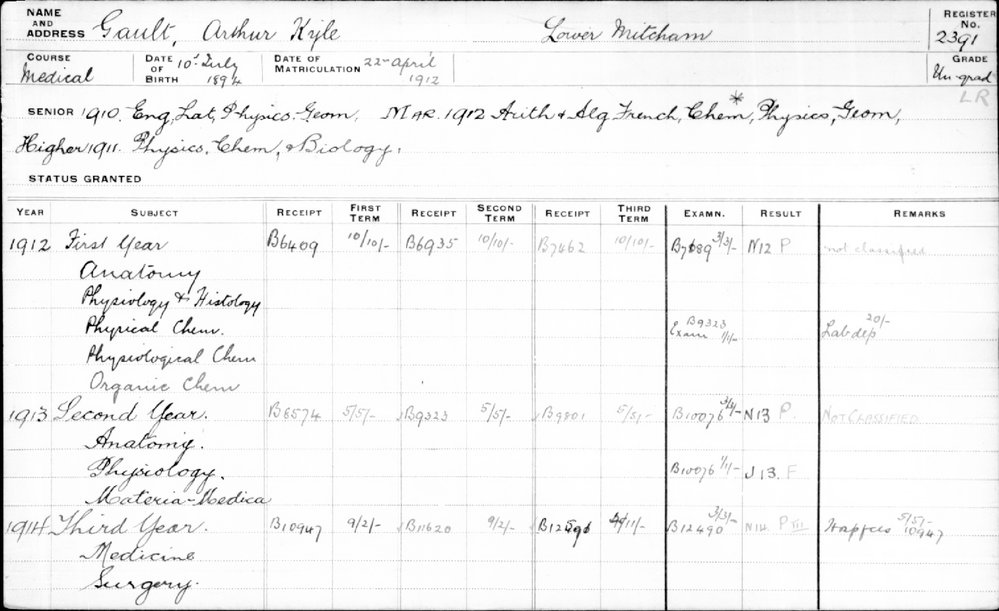 NAME AND ADDRESS Gault, Arthur Kyle Lower Mitcham REGISTER No. 2391
COURSE Medical DATE OF BIRTH 10th July 1894 DATE OF MATRICULATION 22-April 1912 GRADE Un-grad
LR
SENIOR 1910. Eng, Lat, Physics. Geom. MAR. 1912 Arith & Alg French, Chem,* Physics, Geom,
Higher 1911. Physics, Chem, & Biology.
STATUS GRANTED
YEAR SUBJECT RECEIPT FIRST TERM RECEIPT SECOND TERM RECEIPT THIRD TERM EXAMN. RESULT REMARKS
1912 First Year B6409 10/10/- B6935 10/10/- B7462 10/10/- B7689 3/3/- N12 P not classified
Anatomy
Physiology & Histology
Physical Chem. Exam B9323 1/1/- Lab dep 20/-
Physiological Chem
Organic Chem
1913 Second Year. B8574 5/5/- B9323 5/5/- B9801 5/5/- B10076 3/3/- N13 P. NOT CLASSIFIED
Anatomy.
Physiology. B10076 1/1/- J13. F
Materia-Medica
1914 Third Year. B10947 9/2/- B11620 9/2/- 11/- B12490 3/3/- N14 P III 5/5/- 10947
Medicine
Surgery.